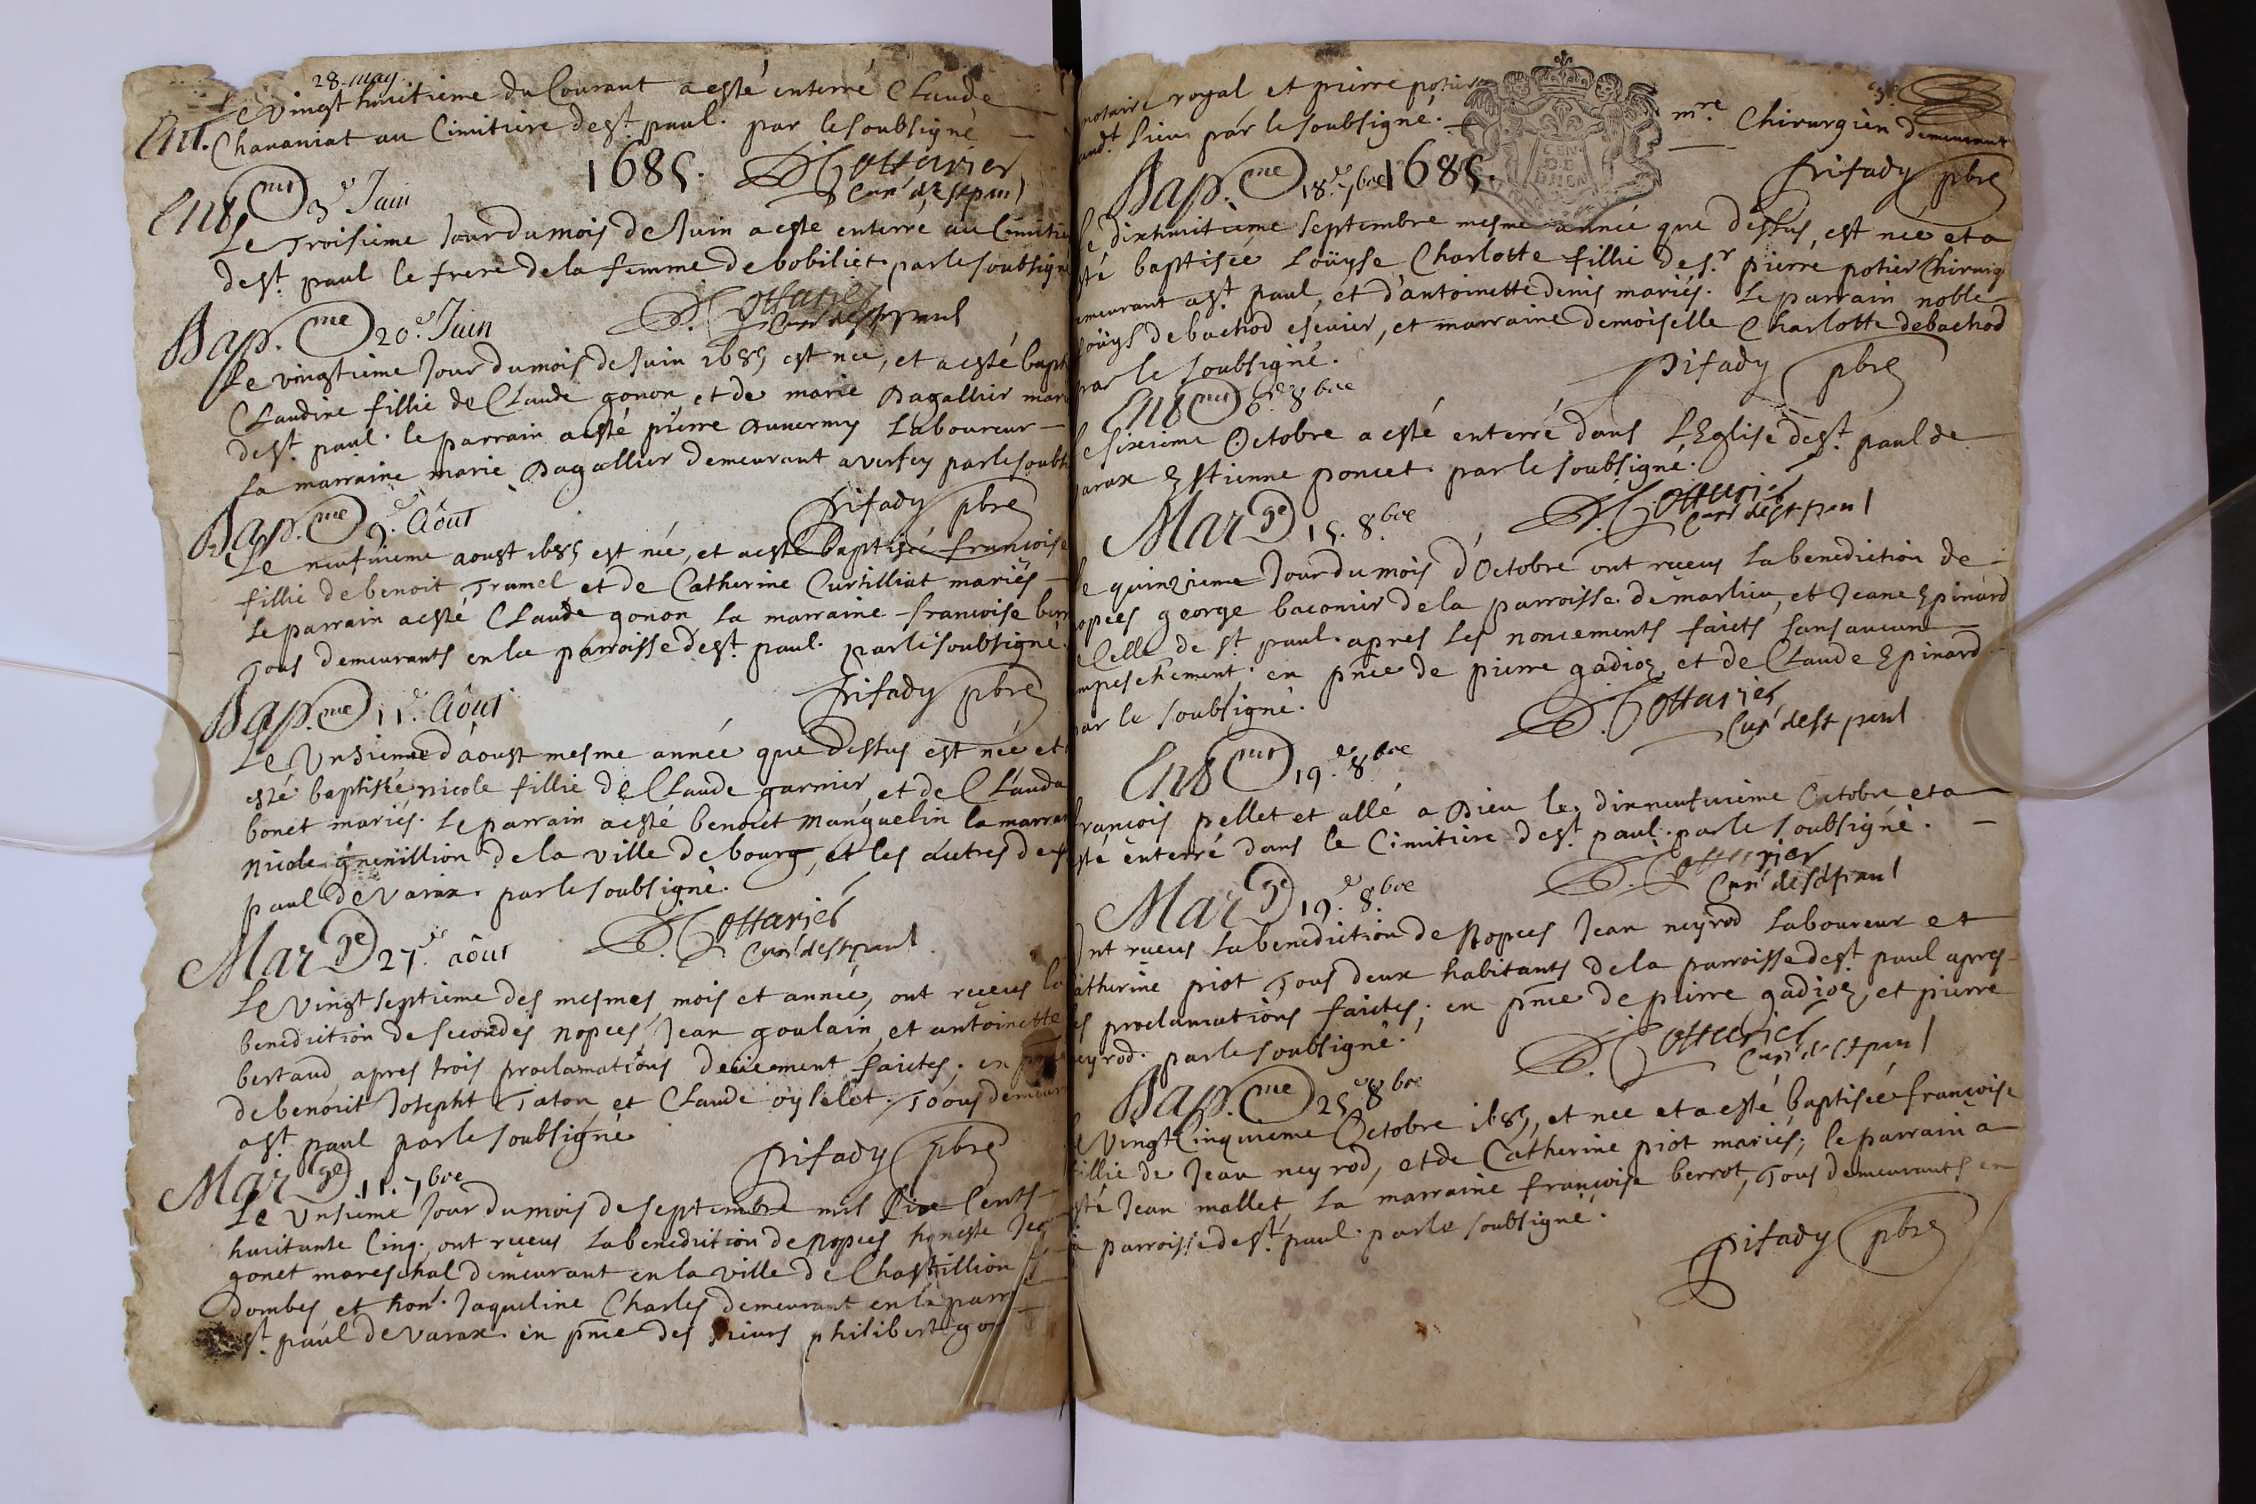 28 may.
Le vingt huitieme du Courant a esté enterré Claude
Ent. Chananiat au Cimitiere de st. paul. par le soubsigné
1685. Cottarier
Curé de st paul
Ent 3e Juin
Le Troisieme Jour du mois de Juin a esté enterré au Cimitie
de st. paul le frere de la femme de bobiliet. par le soubsigné
Cottarier
Curé de st paul
Bap.me 20.e Juin
Le vingtieme Jour du mois de Juin 1685 est née, et a esté bapt
Claudine fillie de Claude gonon et de marie Dagallier mari
de st. paul. le parrain a esté pierre Laboureur
La marraine marie Dagallier demeurant a versey par le soubs
frifady pbre
Bap.me 9.e Aôut
Le neufvieme aoust 1685 est née, et a esté baptisée francoise
fillie de benoit Tramel et de Catherine Curtilliat mariés
Le parrain a esté Claude gonon La marraine francoise ber
Tous demeurants en la parroisse de st. paul. par le soubsigné.
frifady pbre
Bap.me 11.e Aôut
Le Unsieme d'aoust mesme année que dessus est née et
esté baptisée nicole fillie de Claude garnier, et de Clauda
bonet mariés. Le parrain a esté benoict manguelin la marrai
nicole de la ville de bourg, et les autres de s
paul de varax. par le soubsigné.
Cottarier
Curé de st paul
Mar.ge 27.e aôut
Le vingt septieme des mesmes mois et année, ont receus la
benediction de secondes nopces, Jean goulain, et antoinette
bertaud, apres trois proclamations deüement faictes. en
de benoict Josepht Taton, et Claude oylelot. Toous demeur
a st. paul par le soubsigné
frifady pbre
Mar.ge 11. 7bre
Le Unsieme Jour du mois de septembre mil Six Cents
huictante Cinq, ont receus La benediction de Nopces honeste
gonet mareschal demeurant en la ville de Chastillion
dombes et hon. Jaqueline Charles demeurant en la parr
st. paul de varax. en pnce des sieurs philibert gon
notaire royal et pierre potier mre. Chirurgien demeurant
audt. Lieu par le soubsigné.
frifady pbre
Bap.me 18.e 7bre 1685.
le dixhuitieme septembre mesme année que dessus, est née et a
sté baptisée Loüyse Charlotte fillie de s.r pierre potier Chirurg
emeurant a st. paul, et d'antoinette denis mariés. Le parrain noble
Loüys de bachod escuier, et marraine demoiselle Charlotte debachod
par le soubsigné.
frifady pbre
Ent 6.e 8bre
Le sixieme Octobre a esté enterré dans L'Eglise de st. paul de
varax Estienne poncet. par le soubsigné.
Cottarier
Curé de st paul
Mar.ge 15. 8.bre
Le quinzieme Jour du mois d'Octobre ont receus la benediction de
nopces george baconier de la parroisse de marlieu, et Jeane Epinard
Celle de st. paul. apres les noncements faicts sans aucun
mpeschement. en pnce de pierre gadioz, et de Claude Epinard
par le soubsigné.
Cottarier
Curé de st paul
Ent 19.e 8.bre
francois pellet et allé a Dieu le dixneufvieme Octobre et a
sté enterré dans le Cimitiere de st. paul. par le soubsigné.
Cottarier
Curé de st paul
Mar.ge 19.e 8.bre
Ont receus La benediction de Nopces Jean neyrod Laboureur et
Catherine piot Tous deux habitants de la parroisse de st. paul apres
es proclamations faictes; en pnce de pierre gadioz, et pierre
neyrod. par le soubsigné.
Cottarier
Curé de st paul
Bap.me 25.e 8bre
Le Vingt Cinquieme Octobre 1685, et née et a esté baptisée francoise
fillie de Jean neyrod, et de Catherine piot mariés; le parrain a
sté Jean mallet, La marraine francoise berrot, Tous demeurants en
a parroisse de st. paul. par le soubsigné.
frifady pbre